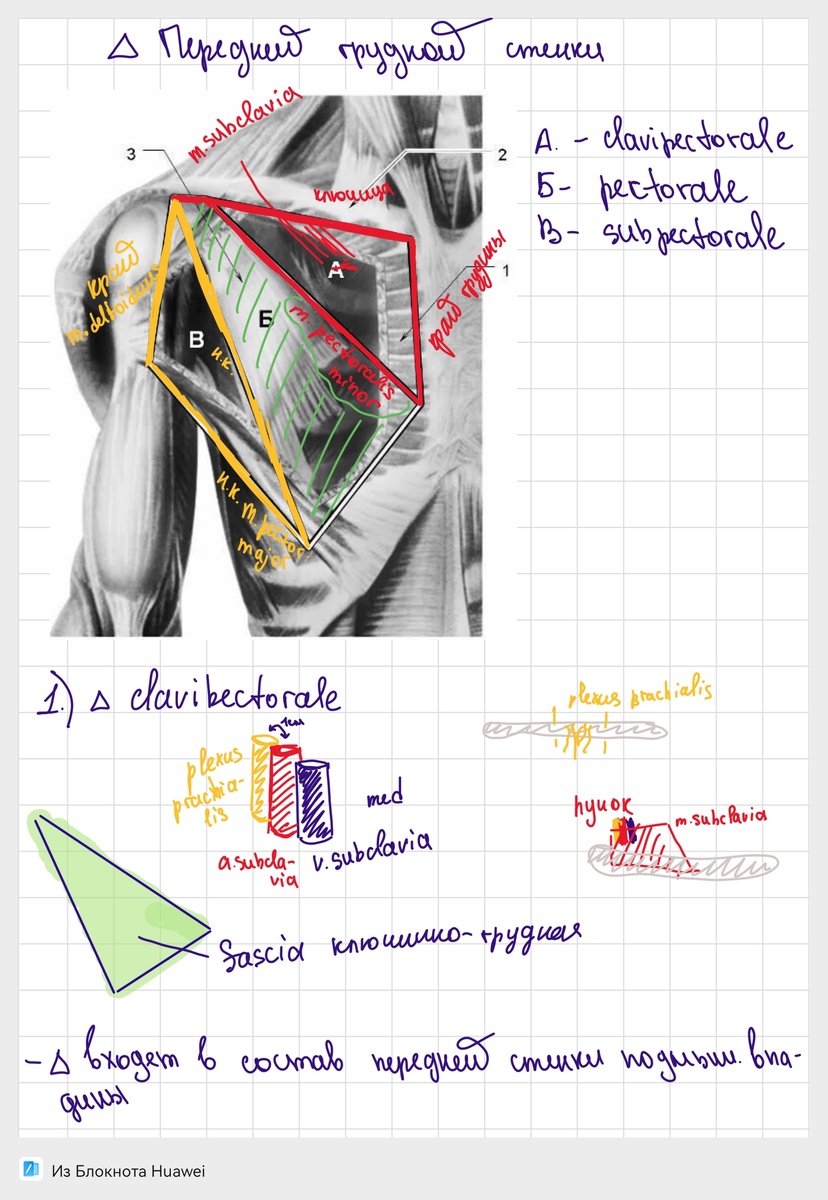 △ Передней грудной стенки
m.subclavia
3
2
ключица
А. - clavipectorale
Б- pectorale
В- subpectorale
край
m. deltoideus
А
край грудины
1
Б
В
н.к.
m. pectoralis
minor
н.к. m. pector.
major
1.) △ clavibectorale
plexus prachialis
1см
plexus
prachia-
lis
med
a.subcla-
via
v. subclavia
пучок
m.subclavia
fascia ключишно-грудная
- △ входет в состав передней стенки подмыш. впа-
дины
Из Блокнота Huawei